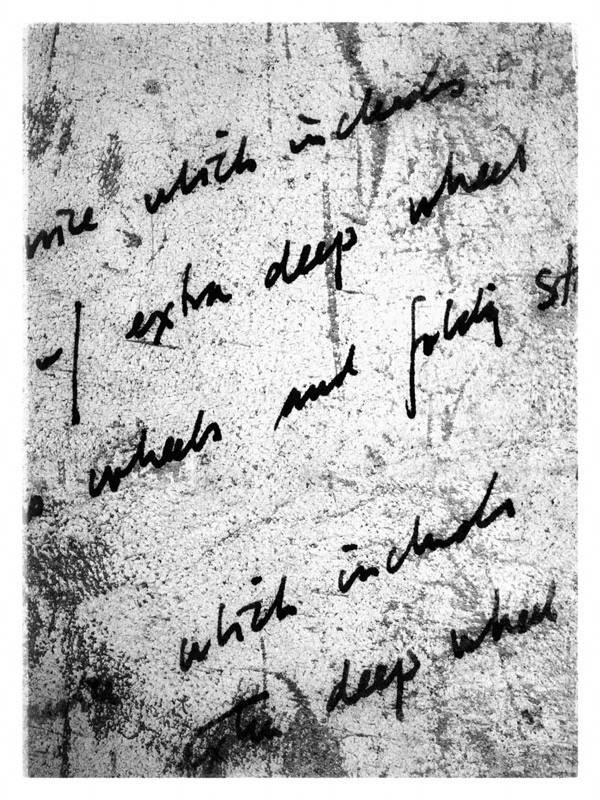 which includes
extra deep wheel
wheels and foldig
which includs
extra deep wheel